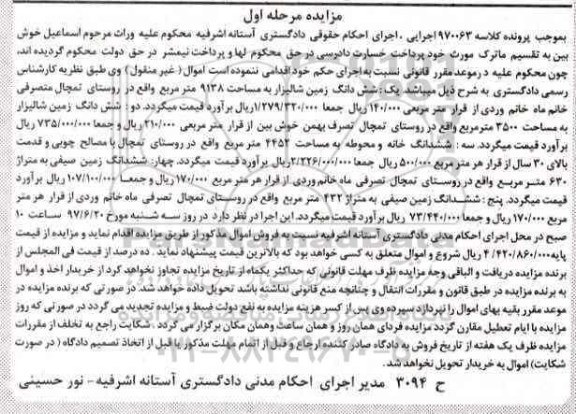 مزایده مرحله اول
بموجب پرونده کلاسه ۹۷۰۰۶۳ اجرایی ، اجرای احکام حقوقی دادگستری آستانه اشرفیه محکوم علیه وراث مرحوم اسماعیل خوش
بین به تقسیم ماترک مورث خود پرداخت خسارت دادرسی در حق محکوم لها و پرداخت نیمعشر در حق دولت محکوم گردیده اند،
چون محکوم علیه در موعد مقرر قانونی نسبت به اجرای حکم خود اقدامی ننموده است اموال ( غیر منقول ) وی طبق نظریه کارشناس
رسمی دادگستری به شرح ذیل میباشد. یک : شش دانگ زمین شالیزار به مساحت ۹۱۳۸ متر مربع واقع در روستای تمچال متصرفی
خانم ماه خانم وردی از قرار متر مربعی ۱۴۰/۰۰۰ ریال جمعا ۱/۲۷۹/۳۲۰/۰۰۰ ریال برآورد قیمت میگردد. دو : شش دانگ زمین شالیزار
به مساحت ۳۵۰۰ مترمربع واقع در روستای تمچال تصرف بهمن خوش بین از قرار متر مربعی ۲۱۰/۰۰۰ ریال و جمعا ۷۳۵/۰۰۰/۰۰۰ ریال
برآورد قیمت میگردد. سه : ششدانگ خانه و محوطه به مساحت ۴۴۵۲ متر مربع واقع در روستای تمچال با مصالح چوبی و قدمت
بالای ۳۰ سال از قرار هر متر مربع ۵۰۰/۰۰۰ ریال جمعا ۲/۲۲۶/۰۰۰/۰۰۰ ریال برآورد قیمت میگردد. چهار: ششدانگ زمین صیفی به متراژ
۶۳۰ متر مربع واقع در روستای تمچال تصرفی ماه خانم وردی از قرار هر متر مربع ۱۷۰/۰۰۰ ریال و جمعا ۱۰۷/۱۰۰/۰۰۰ ریال برآورد
قیمت میگردد. پنج : ششدانگ زمین صیفی به متراژ ۴۳۲ متر مربع واقع در روستای تمچال تصرفی ماه خانم وردی از قرار هر متر
مربع ۱۷۰/۰۰۰ ریال و جمعا ۷۳/۴۴۰/۰۰۰ ریال برآورد قیمت میگردد. این اجرا در نظر دارد در روز سه شنبه مورخ ۹۷/۶/۲۰ ساعت ۱۰
صبح در محل اجرای احکام مدنی دادگستری آستانه اشرفیه نسبت به فروش اموال مذکور از طریق مزایده اقدام نماید و مزایده از قیمت
پایه ۴/۴۲۰/۸۶۰/۰۰۰ ریال شروع و اموال متعلق به کسی خواهد بود که بالاترین قیمت پیشنهاد نماید . ده درصد از قیمت فی المجلس از
برنده مزایده دریافت و الباقی وجه مزایده ظرف مهلت قانونی که حداکثر یکماه از تاریخ مزایده تجاوز نخواهد کرد از خریدار اخذ و اموال
به برنده مزایده در طبق قانون و مقررات انتقال و چنانچه منع قانونی نداشته باشد تحویل داده خواهد شد. در صورتی که برنده مزایده در
موعد مقرر بقیه بهای اموال را نپردازد سپرده وی پس از کسر هزینه مزایده به نفع دولت ضبط و مزایده تجدید می گردد در صورتی که روز
مزایده با ایام تعطیل مقارن گردد مزایده فردای همان روز و همان ساعت وهمان مکان برگزار می گردد . شکایت راجع به تخلف از مقررات
مزایده ظرف یک هفته از تاریخ فروش به دادگاه صادر کننده ارجاع و قبل از اتمام مهلت مذکور یا قبل از اتخاذ تصمیم دادگاه ( در صورت
شکایت) اموال به خریدار تحویل نخواهد شد.
ح ۳۰۹۴ مدیر اجرای احکام مدنی دادگستری آستانه اشرفیه - نور حسینی